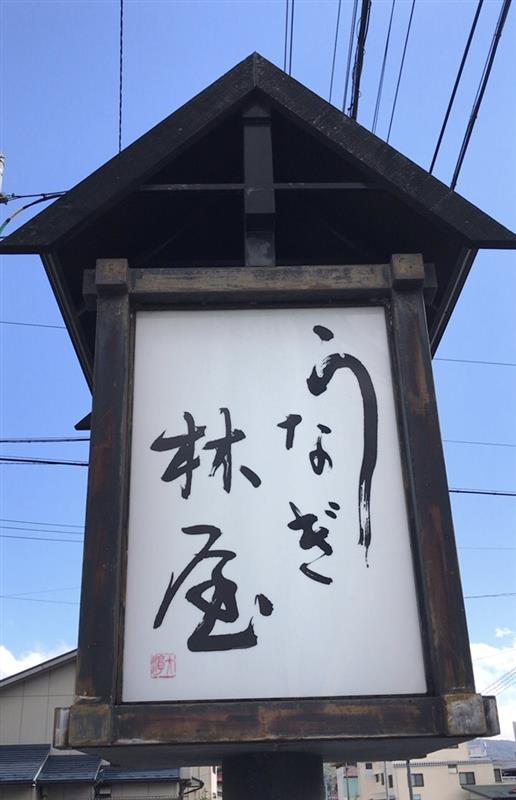 うなぎ
林屋